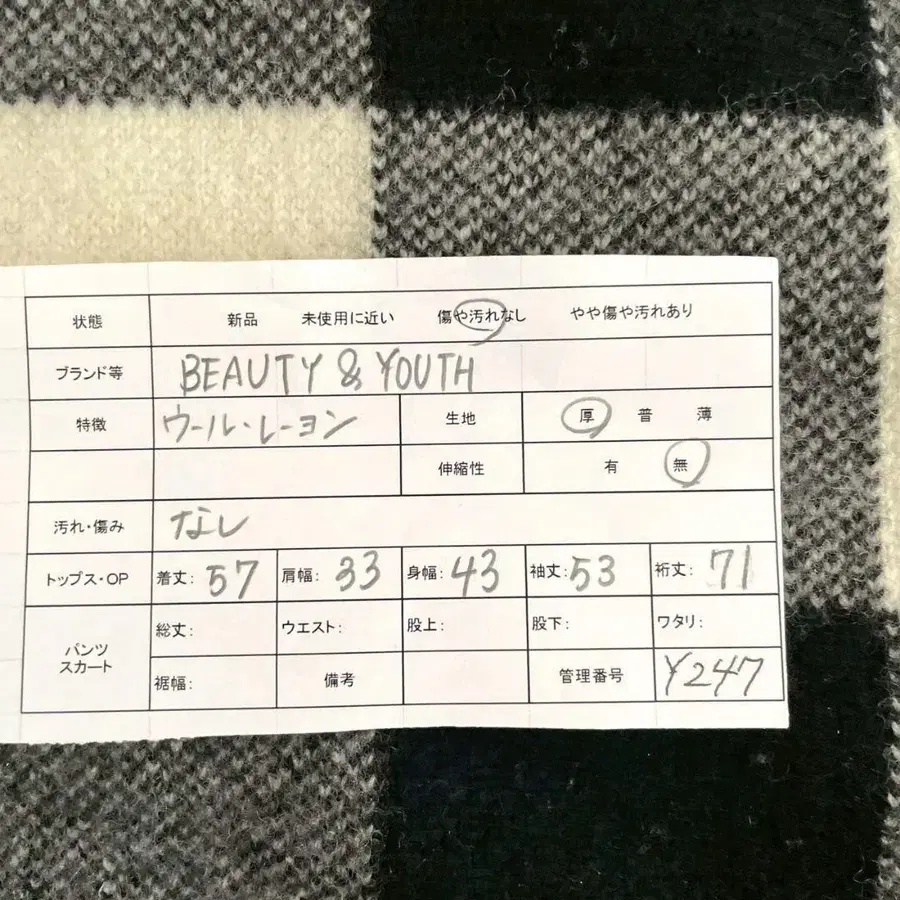 状態 新品 未使用に近い 傷や汚れなし やや傷や汚れあり
ブランド等 BEAUTY & YOUTH
特徴 ウール・レーヨン 生地 厚 普 薄
伸縮性 有 無
汚れ・傷み なし
トップス・OP 着丈: 57 肩幅: 33 身幅: 43 袖丈: 53 裄丈: 71
パンツ スカート 総丈: ウエスト: 股上: 股下: ワタリ:
裾幅: 備考 管理番号 ¥247